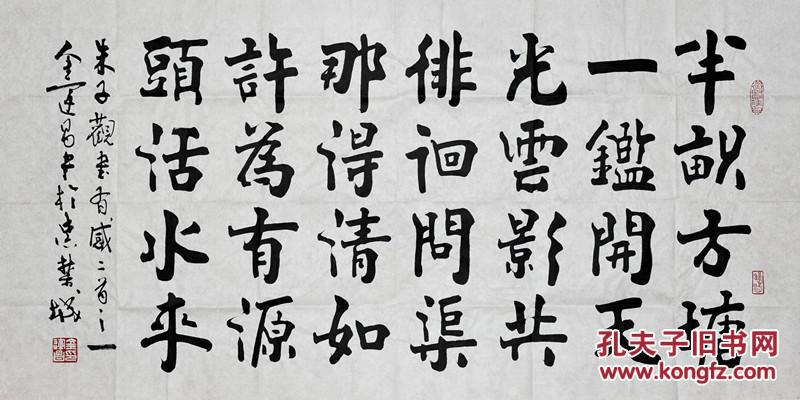 半畝方塘
一鑑開天
光雲影共
徘徊問渠
那得清如
許為有源
頭活水來
朱子觀書有感二首之一
金運昌書於
孔夫子旧书网
www.kongfz.com